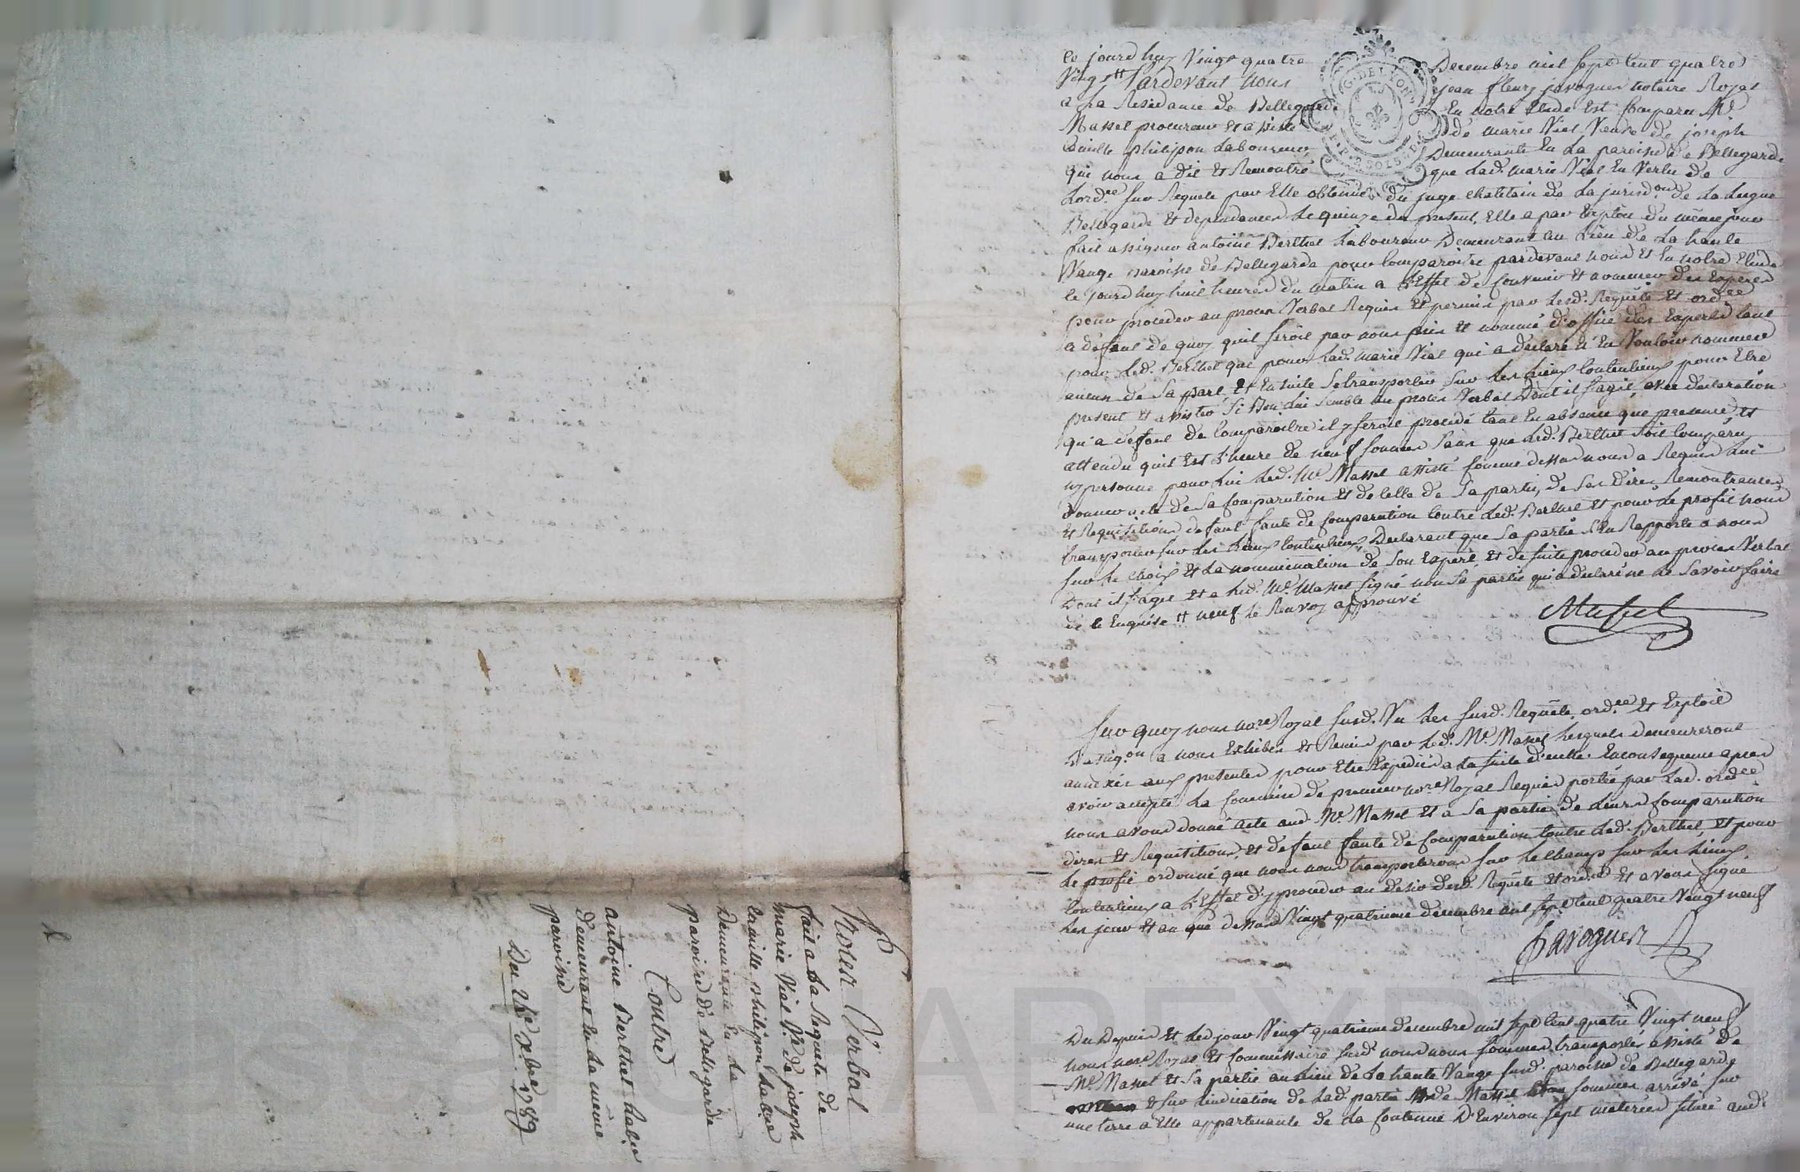 Ce jourd'huy Vingt quatre Decembre mil sept cent quatre
Vingt neuf Pardevant nous jean fleury paroguez notaire Royal
a la Residance de Bellegarde En notre Etude Est Comparu Me
Massel procureur et assisté de marie Vial Veuve de joseph
Camille philipon Laboureur Demeurante En La paroisse de Bellegarde
qui nous a dit et Remontré que Lad. marie Vial En Vertu de
Lordce sur Requete par Elle obtenue du juge chatelain de La jurisdon de La
Bellegarde et dependances le quinze du present, Elle a par Exploit du même jour
fait assigner antoine Berthet Laboureur Demeurant au Lieu de La haute
Vauge paroisse de Bellegarde pour Comparoitre pardevant nous et En notre Etude
Ce jourd'huy huit heures du matin a L'Effet de Convenir et a nommer des Experts
pour proceder au proces Verbal Requis Et permis par Lesd. Requete Et ordce
a defaut de quoy qu'il seroit par nous pris et nommé d'office des Experts tant
pour Led. Berthet que pour Lad. marie Vial qui a declaré n'En Vouloir nommer
aucun de sa part, Et Ensuite Se transporter Sur Les Lieux Contentieux pour Etre
present et assisté Si Bon Lui Semble au proces Verbal Dont il sagit avec declaration
qu'a defaut de Comparoitre il y seroit procedé tant En absence que presence et
attendu quil Est L'heure de neuf sonnee sans que Led. Berthet soit Comparu
ny personne pour Lui Led. Me Massel assisté Comme dessus nous a Requis Lui
Donner acte de Sa Comparution Et de Celle de Sa partie, de Ses dires Remontrances
et Requisitions defaut faute de Comparution Contre Led. Berthet et pour Le profit nous
transporter sur Les Lieux Contentieux Declarant que Sa partie S'En Rapporte a nous
sur Le choix et La nommination de Son Expert, et de suite proceder au proces Verbal
Dont il s'agit et a Led. Me Massel Signé non Sa partie qui a declaré ne Le Savoir faire
de Ce Enquise et neuf le Renvoy approuvé
Massel
Sur quoy nous nore Royal susd. Vu Les susd. Requete, ordce et Exploit
D'assigon a nous Exhibés et Remis par Led. Me Massel Lesquels demeureront
annexés aux presentes pour Etre Expediés a La suite d'icelles. En consequence apres
avoir accepté La Commission de premier nore Royal Requis portée par Lad. ordce
nous avons donné acte aud. Me Massel et a Sa partie de Leurs Comparution
dires et Requisitions, et defaut faute de Comparution Contre Led. Berthet, et pour
Le profit ordonné que nous nous transporterons sur Le Champ sur Les Lieux
Contentieux a L'Effet d'y proceder au desir desd. Requete et ordce et avons Signé
Les jour et an que dessus Vingt quatrieme decembre mil sept cent quatre Vingt neuf
Paroguez
Du Depuis et Led. jour Vingt quatrieme decembre mil sept cent quatre Vingt neuf
nous nore Royal et Commissaire susd. nous nous sommes transportés assisté de
Me Massel et Sa partie au Lieu de La haute Vauge susd. paroisse de Bellegarde
et sur Lindication de Lad. partie de Massel sommes arrivé sur
une terre a Elle appartenante de La Contenue D'Environ sept meterées située aud.
Proces Verbal
fait a La Requete de
marie Vial Ve de joseph
Camille philipon Lab.re
Demeurante En La
paroisse de Bellegarde
Contre
antoine Berthet Lab.re
demeurant En La même
paroisse
Du 24e Xbre 1789